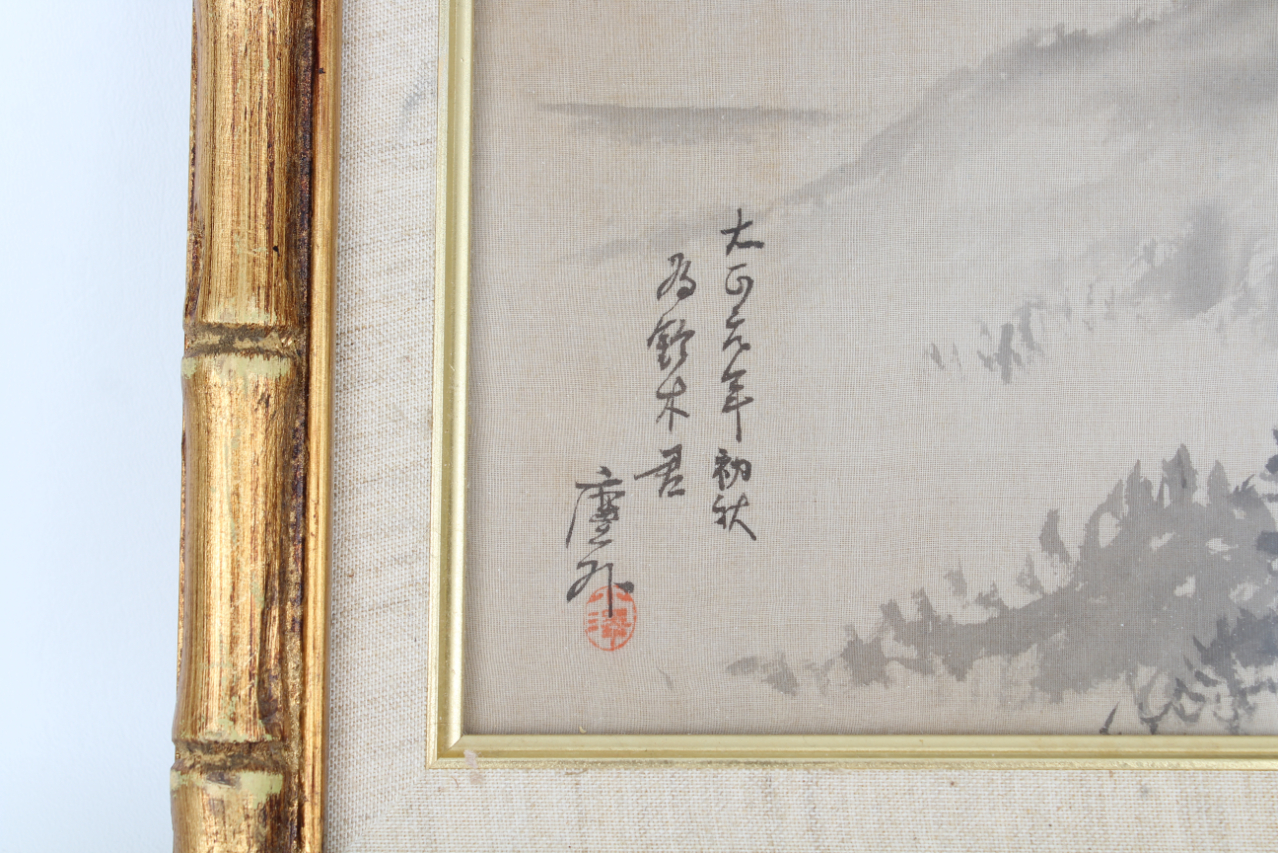 大正元年初秋
為鈴木君
塵外